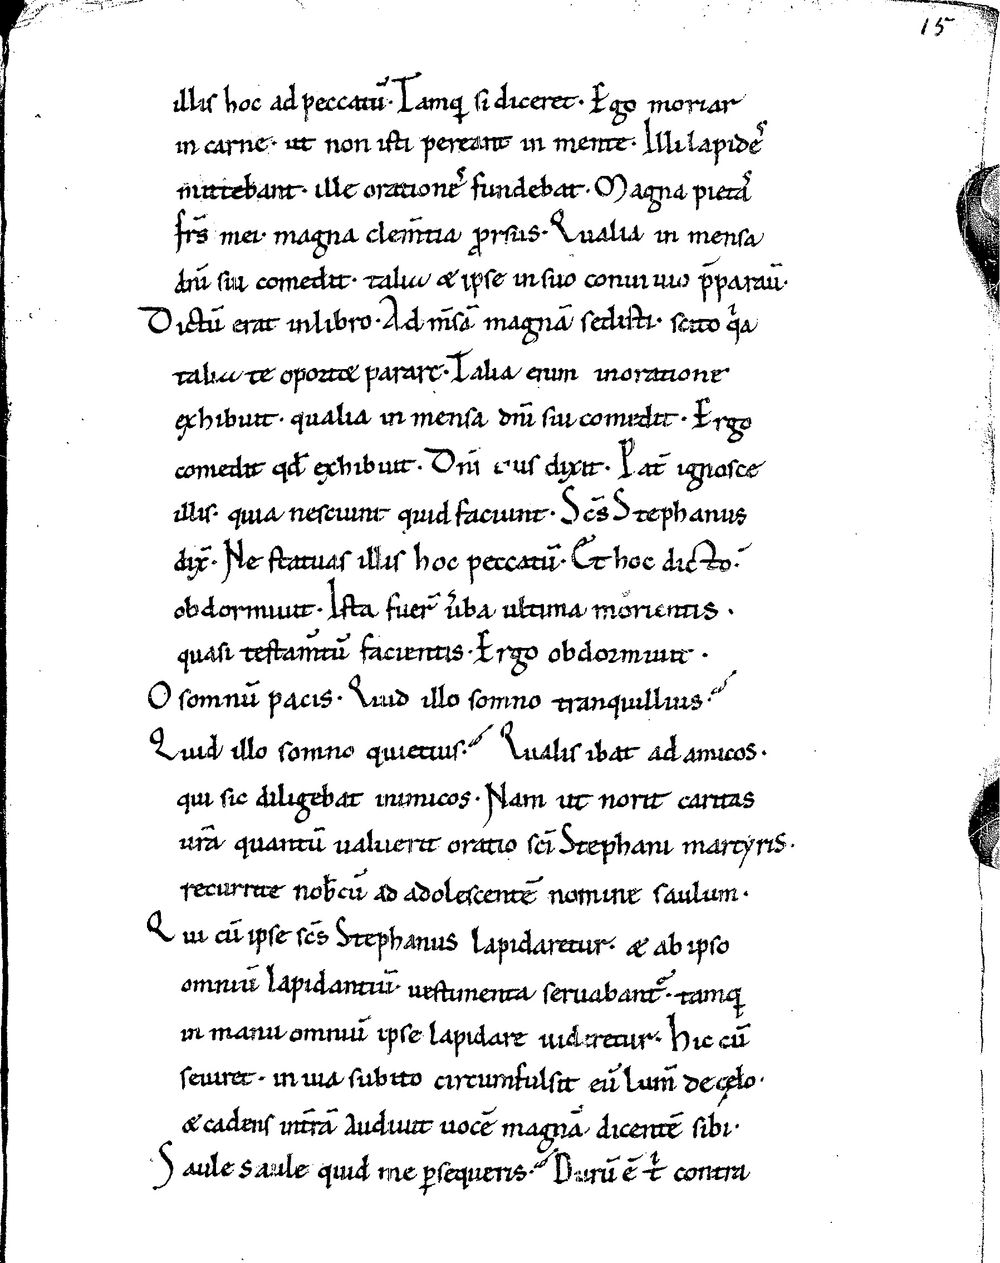 15
illis hoc ad peccatū. Tamq si diceret. Ego moriar
in carne. ut non isti pereant in mente. Illi lapidēs
mittebant. ille orationēs fundebat. Magna pietas
frīs mei. magna clem̄tia prorsus. Qualia in mensa
dn̄i sui comedit. talia & ipse in suo conuiuio p̄parau̅.
Dictū erat in libro. Ad m̄sā magnā sedisti. scito qia
talia te oport& parare. Talia enim in oratione
exhibuit. qualia in mensa dn̄i sui comedit. Ergo
comedit qd exhibuit. Dn̄i eius dixit. Pat̄ ignosce
illis. quia nesciunt quid faciunt. Sc̄s Stephanus
dix̄. Ne statuas illis hoc peccatū. Et hoc dicto.
obdormiuit. Ista fuer̄ ūba ultima morientis.
quasi testam̄tū facientis. Ergo obdormiuit.
O somnū pacis. Quid illo somno tranquillius?
Quid illo somno quietius? Qualis ibat ad amicos.
qui sic diligebat inimicos. Nam ut norit caritas
ur̄a quantū ualuerit oratio sc̄i Stephani martyris.
recurrite nob̄cū ad adolescentē nomine saulum.
Qui cū ipse sc̄s Stephanus lapidaretur. & ab ipso
omniū lapidantiū. uestimenta seruabant̄. tamq
in manu omniū ipse lapidare uideretur. Hic cū
seuiret. in uia subito circumfulsit eū lum̄ de cęlo.
& cadens in t̄rā audiuit uocē magnā dicentē sibi.
Saule saule quid me p̱sequeris? Durū ē t̄ contra